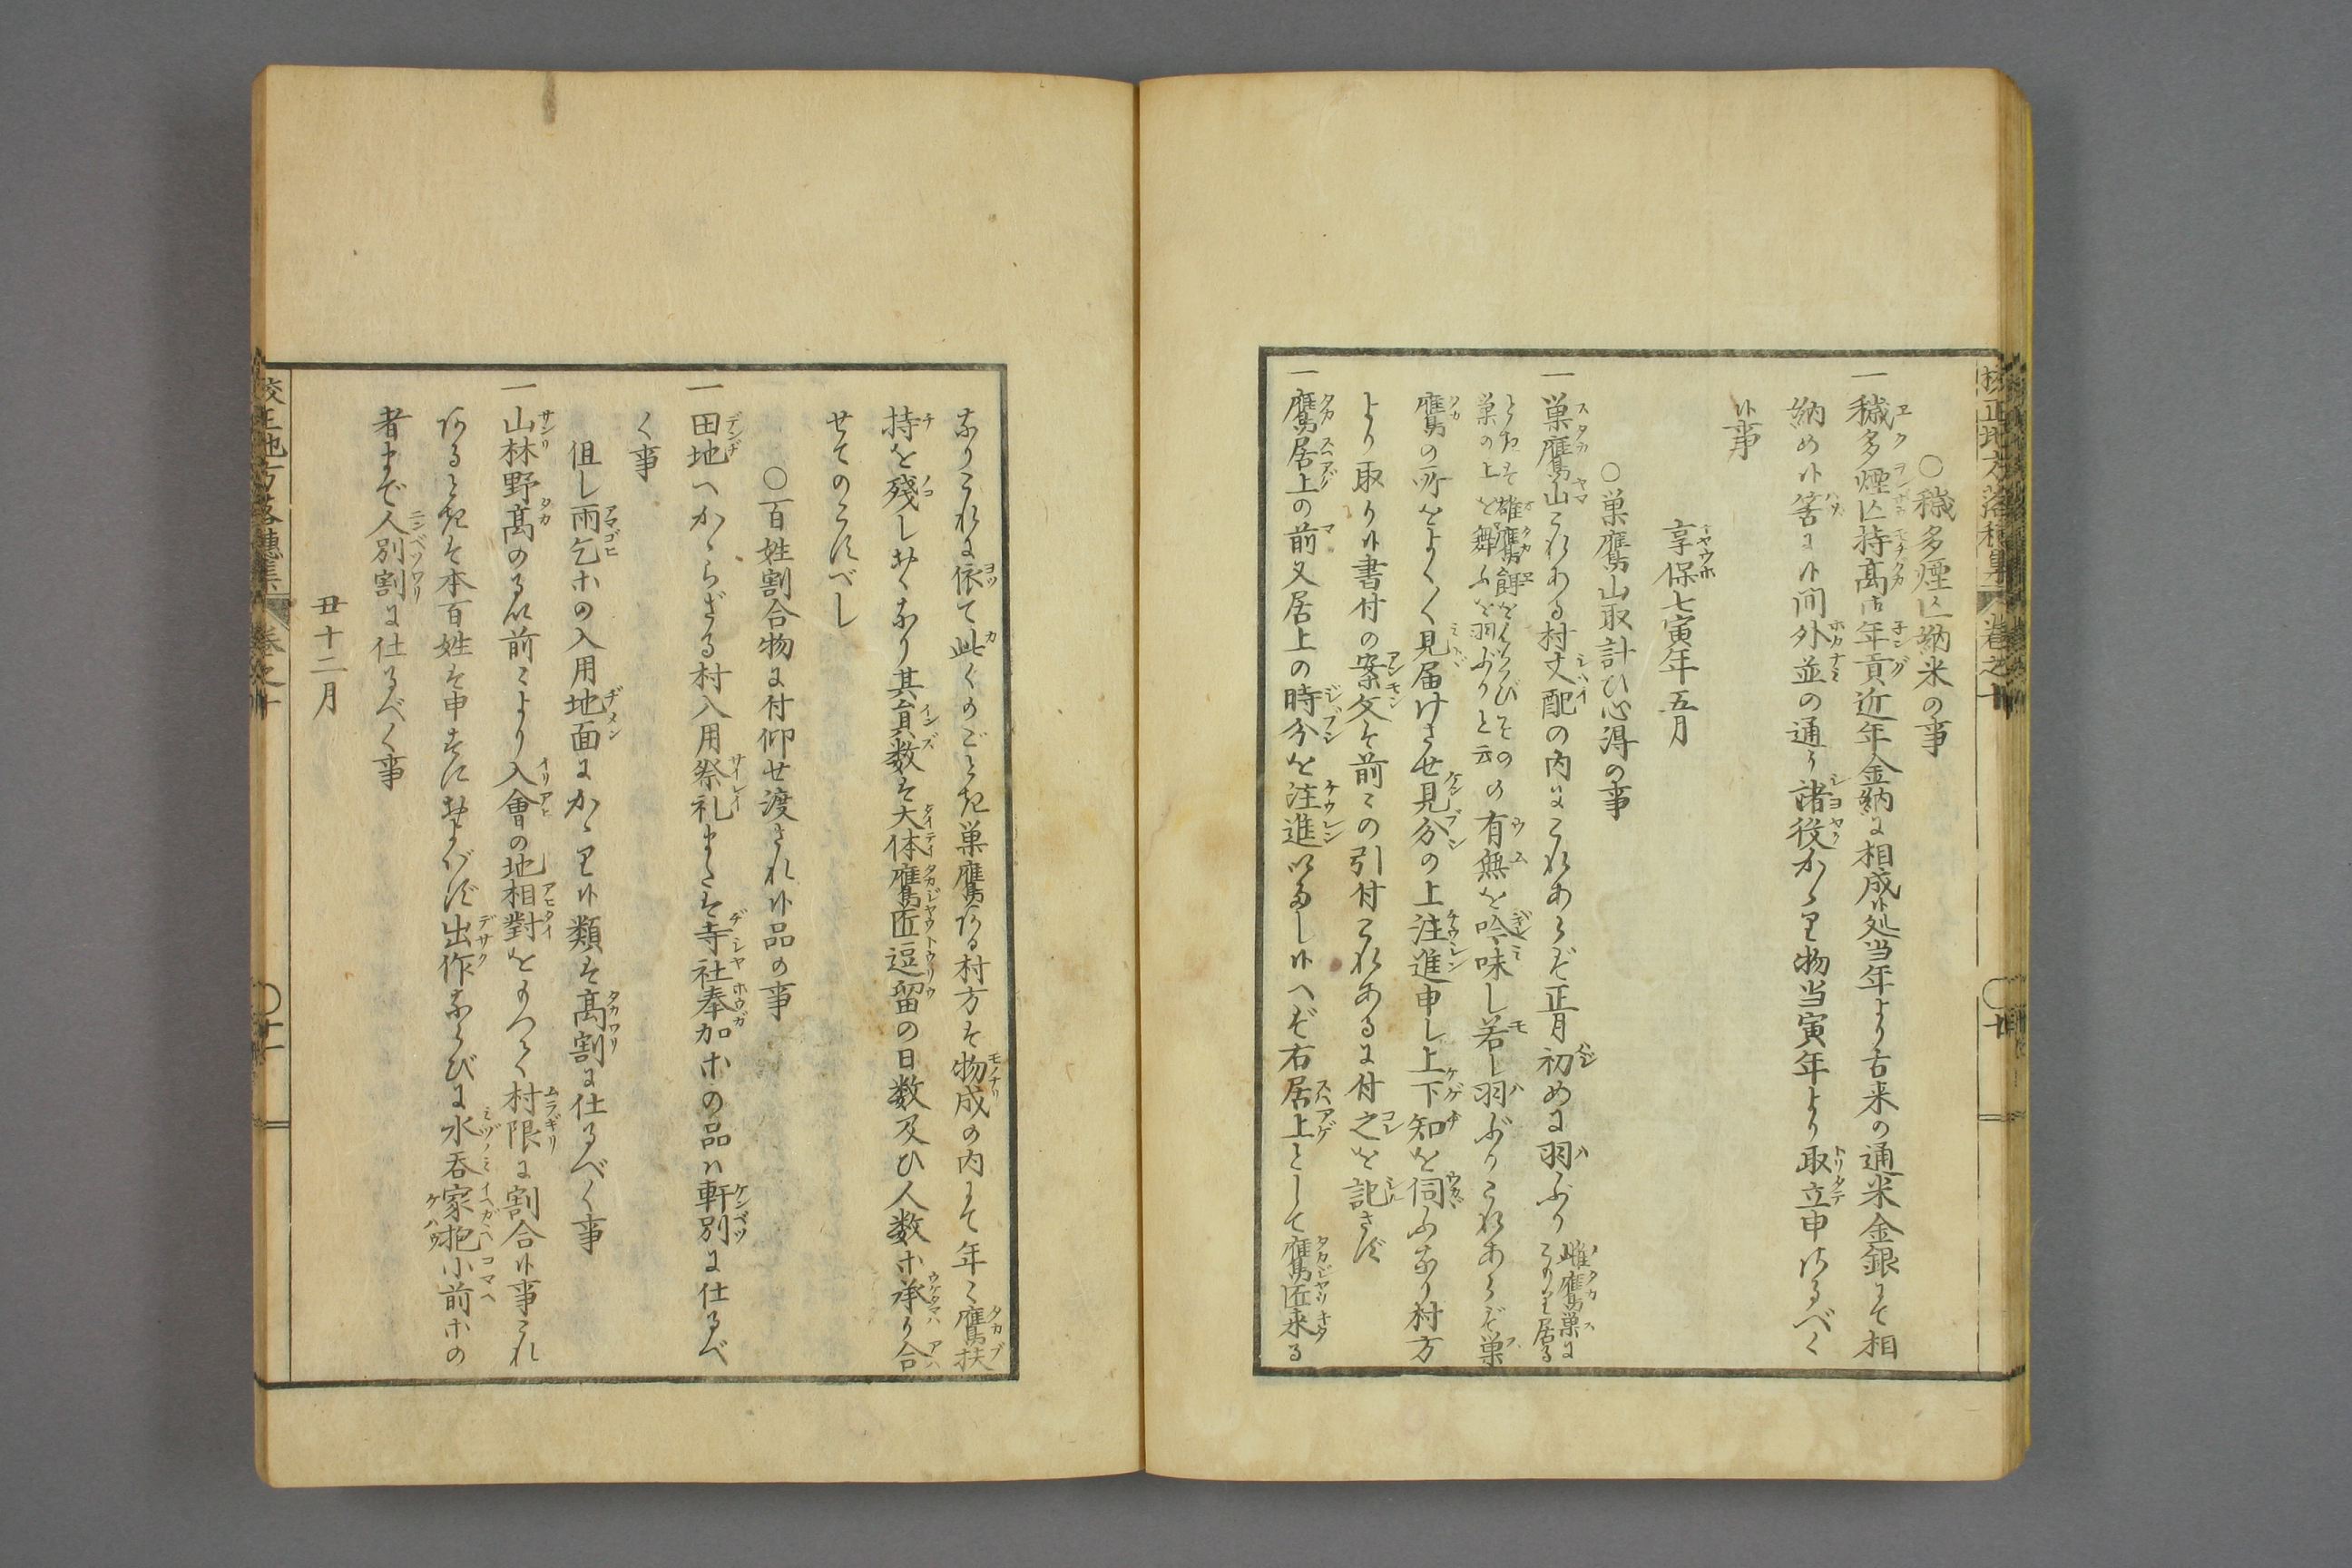 ○穢多煙亡納米の事
一穢多煙亡持高御年貢近年金納に相成候処当年より古来の通米金銀にて相
納め候筈に候間外並の通り諸役かゝり物当寅年より取立申さるべく
候事
享保七寅年五月
○巣鷹山取計ひ心得の事
一巣鷹山これある村支配の内にこれあらば正月初めに羽ぶり雌鷹巣に
巣の上を舞ふを羽ぶりと云の有無を吟味し若し羽ぶりこれあらば巣
鷹の所をよく〳〵見届けさせ見分の上注進申し上下知を伺ふなり村方
より取り候書付の案文は前々の引付これあるに付之を記さず
一鷹居上の前又居上の時分を注進いたし候へば右居上として鷹匠来る
なりこれに依て此くのごとき巣鷹ある村方は物成の内にて年々鷹扶
持を残しおくなり其員数は大体鷹匠逗留の日数及ひ人数等承り合
せてのこすべし
○百姓割合物に付仰せ渡され候品の事
一田地へかゝらざる村入用祭礼または寺社奉加等の品は軒別に仕るべ
く事
但し雨乞等の入用地面にかゝり候類は高割に仕るべく事
一山林野高のる以前より入會の地相對をもつて村限に割合候事これ
あるときは本百姓は申すに及ばず出作ならびに水呑家抱小前等の
者まで人別割に仕るべく事
丑十二月
校正地方落穂集
巻之十
○十
校正地方落穂集
巻之十
○十一